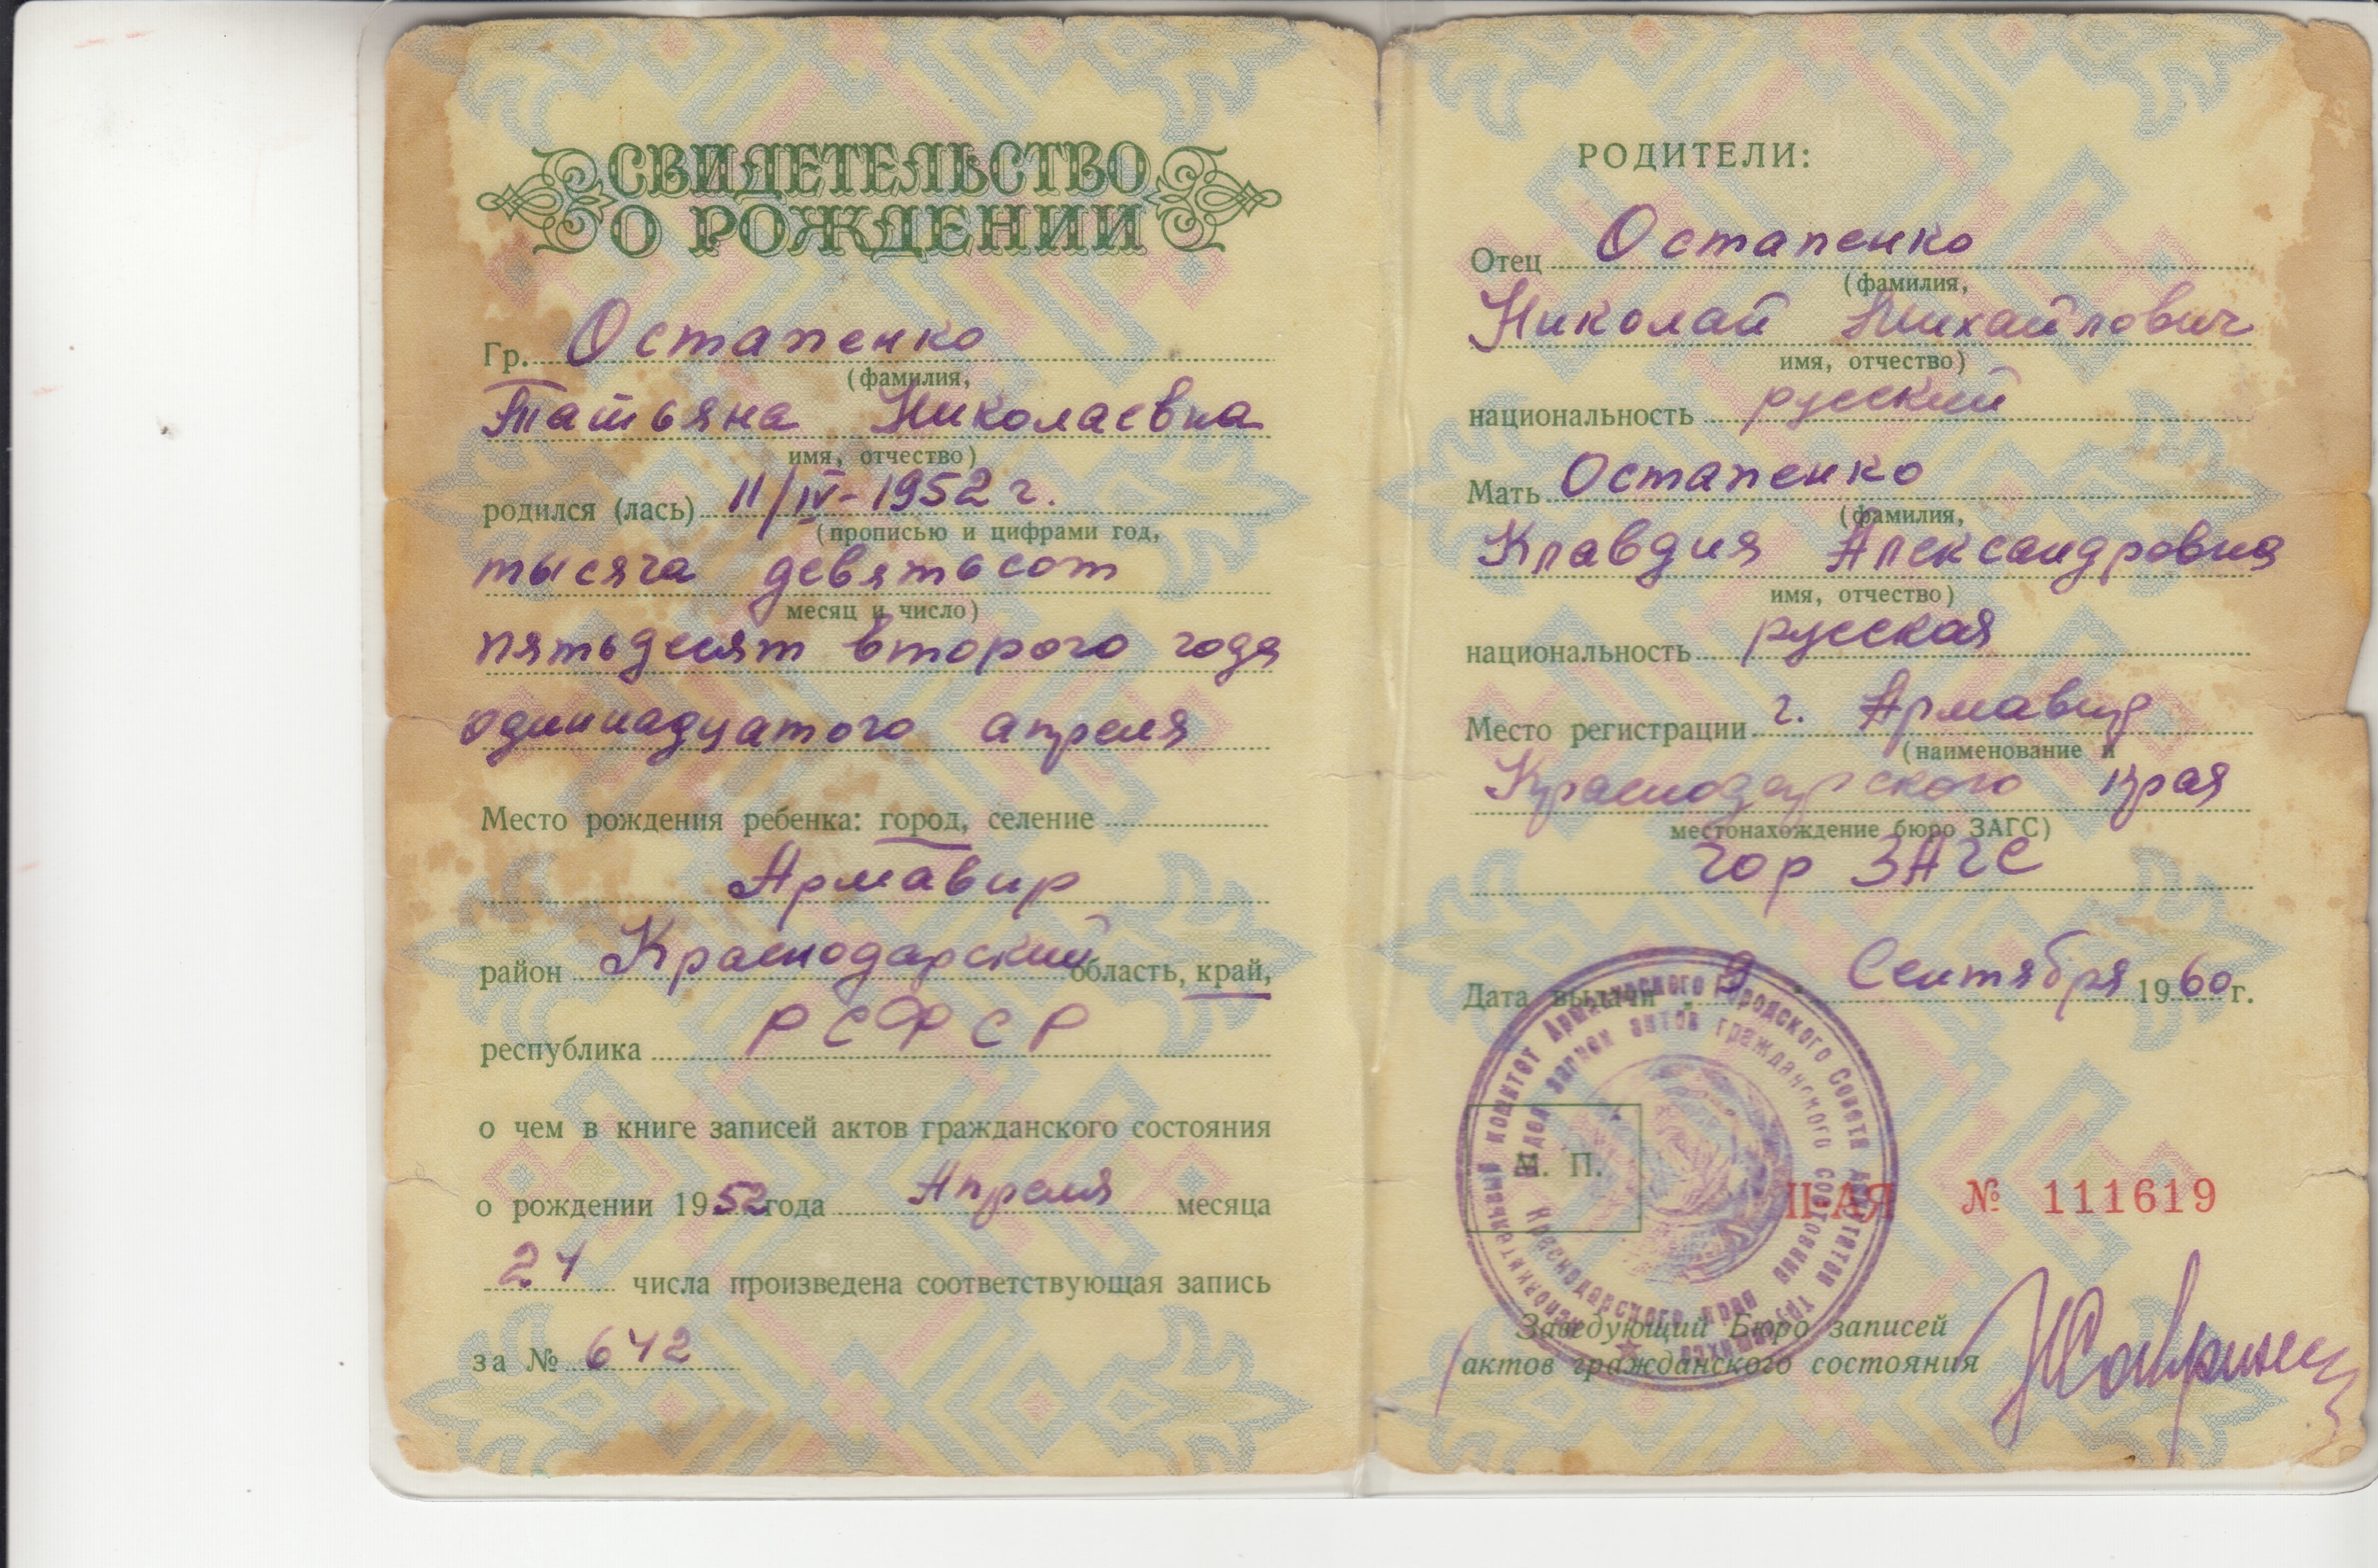 СВИДЕТЕЛЬСТВО
О РОЖДЕНИИ
Гр. Остапенко
(фамилия,
Татьяна Николаевна
имя, отчество)
родился (лась) 11/IV-1952 г.
(прописью и цифрами год,
тысяча девятьсот
месяц и число)
пятьдесят второго года
одиннадцатого апреля
Место рождения ребенка: город, селение
Армавир
район Краснодарский область, край,
республика РСФСР
о чем в книге записей актов гражданского состояния
о рождении 1952 года Апреля месяца
24 числа произведена соответствующая запись
за № 642
РОДИТЕЛИ:
Отец Остапенко
(фамилия,
Николай Михайлович
имя, отчество)
национальность русский
Мать Остапенко
(фамилия,
Клавдия Александровна
имя, отчество)
национальность русская
Место регистрации г. Армавир
(наименование и
Краснодарского края
местонахождение бюро ЗАГС)
гор ЗАГС
Дата выдачи „ 9 " Сентября 1960 г.
Исполнительный комитет Армавирского Городского Совета депутатов трудящихся
Отдел записи актов гражданского состояния
Краснодарского края
М. П.
II-АЯ № 111619
Заведующий Бюро записей
актов гражданского состояния